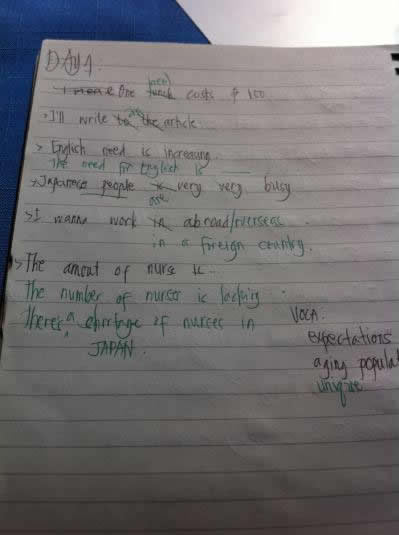 DAY 1:
meal
I mone One lunch costs ₱ 150
>I'll write to the article.
an
> English need is increasing.
The need for English is ____
>Japanese people is very very busy
are
>I wanna work in abroad/overseas
in a foreign country.
>The amont of nurse is..
The number of nurses is lacking
There's a shortage of nurses in
JAPAN.
VOCA:
expectations
aging populat
unique